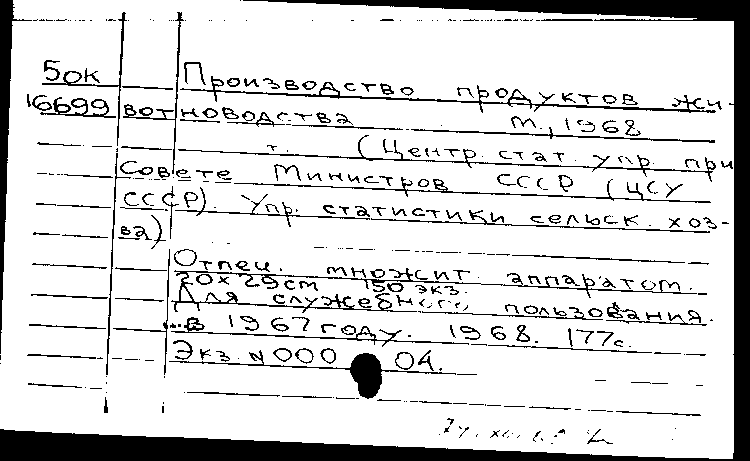 5ок Производство продуктов жи-
16699 вотноводства М., 1968
т. (Центр. стат. упр. при
Совете Министров СССР (ЦСУ
СССР). Упр. статистики сельск. хоз-
ва)
Отпеч. множит. аппаратом.
20х29cm 150 экз.
Для служебного пользования.
...в 1967 году. 1968. 177с.
Экз. N 000 04.